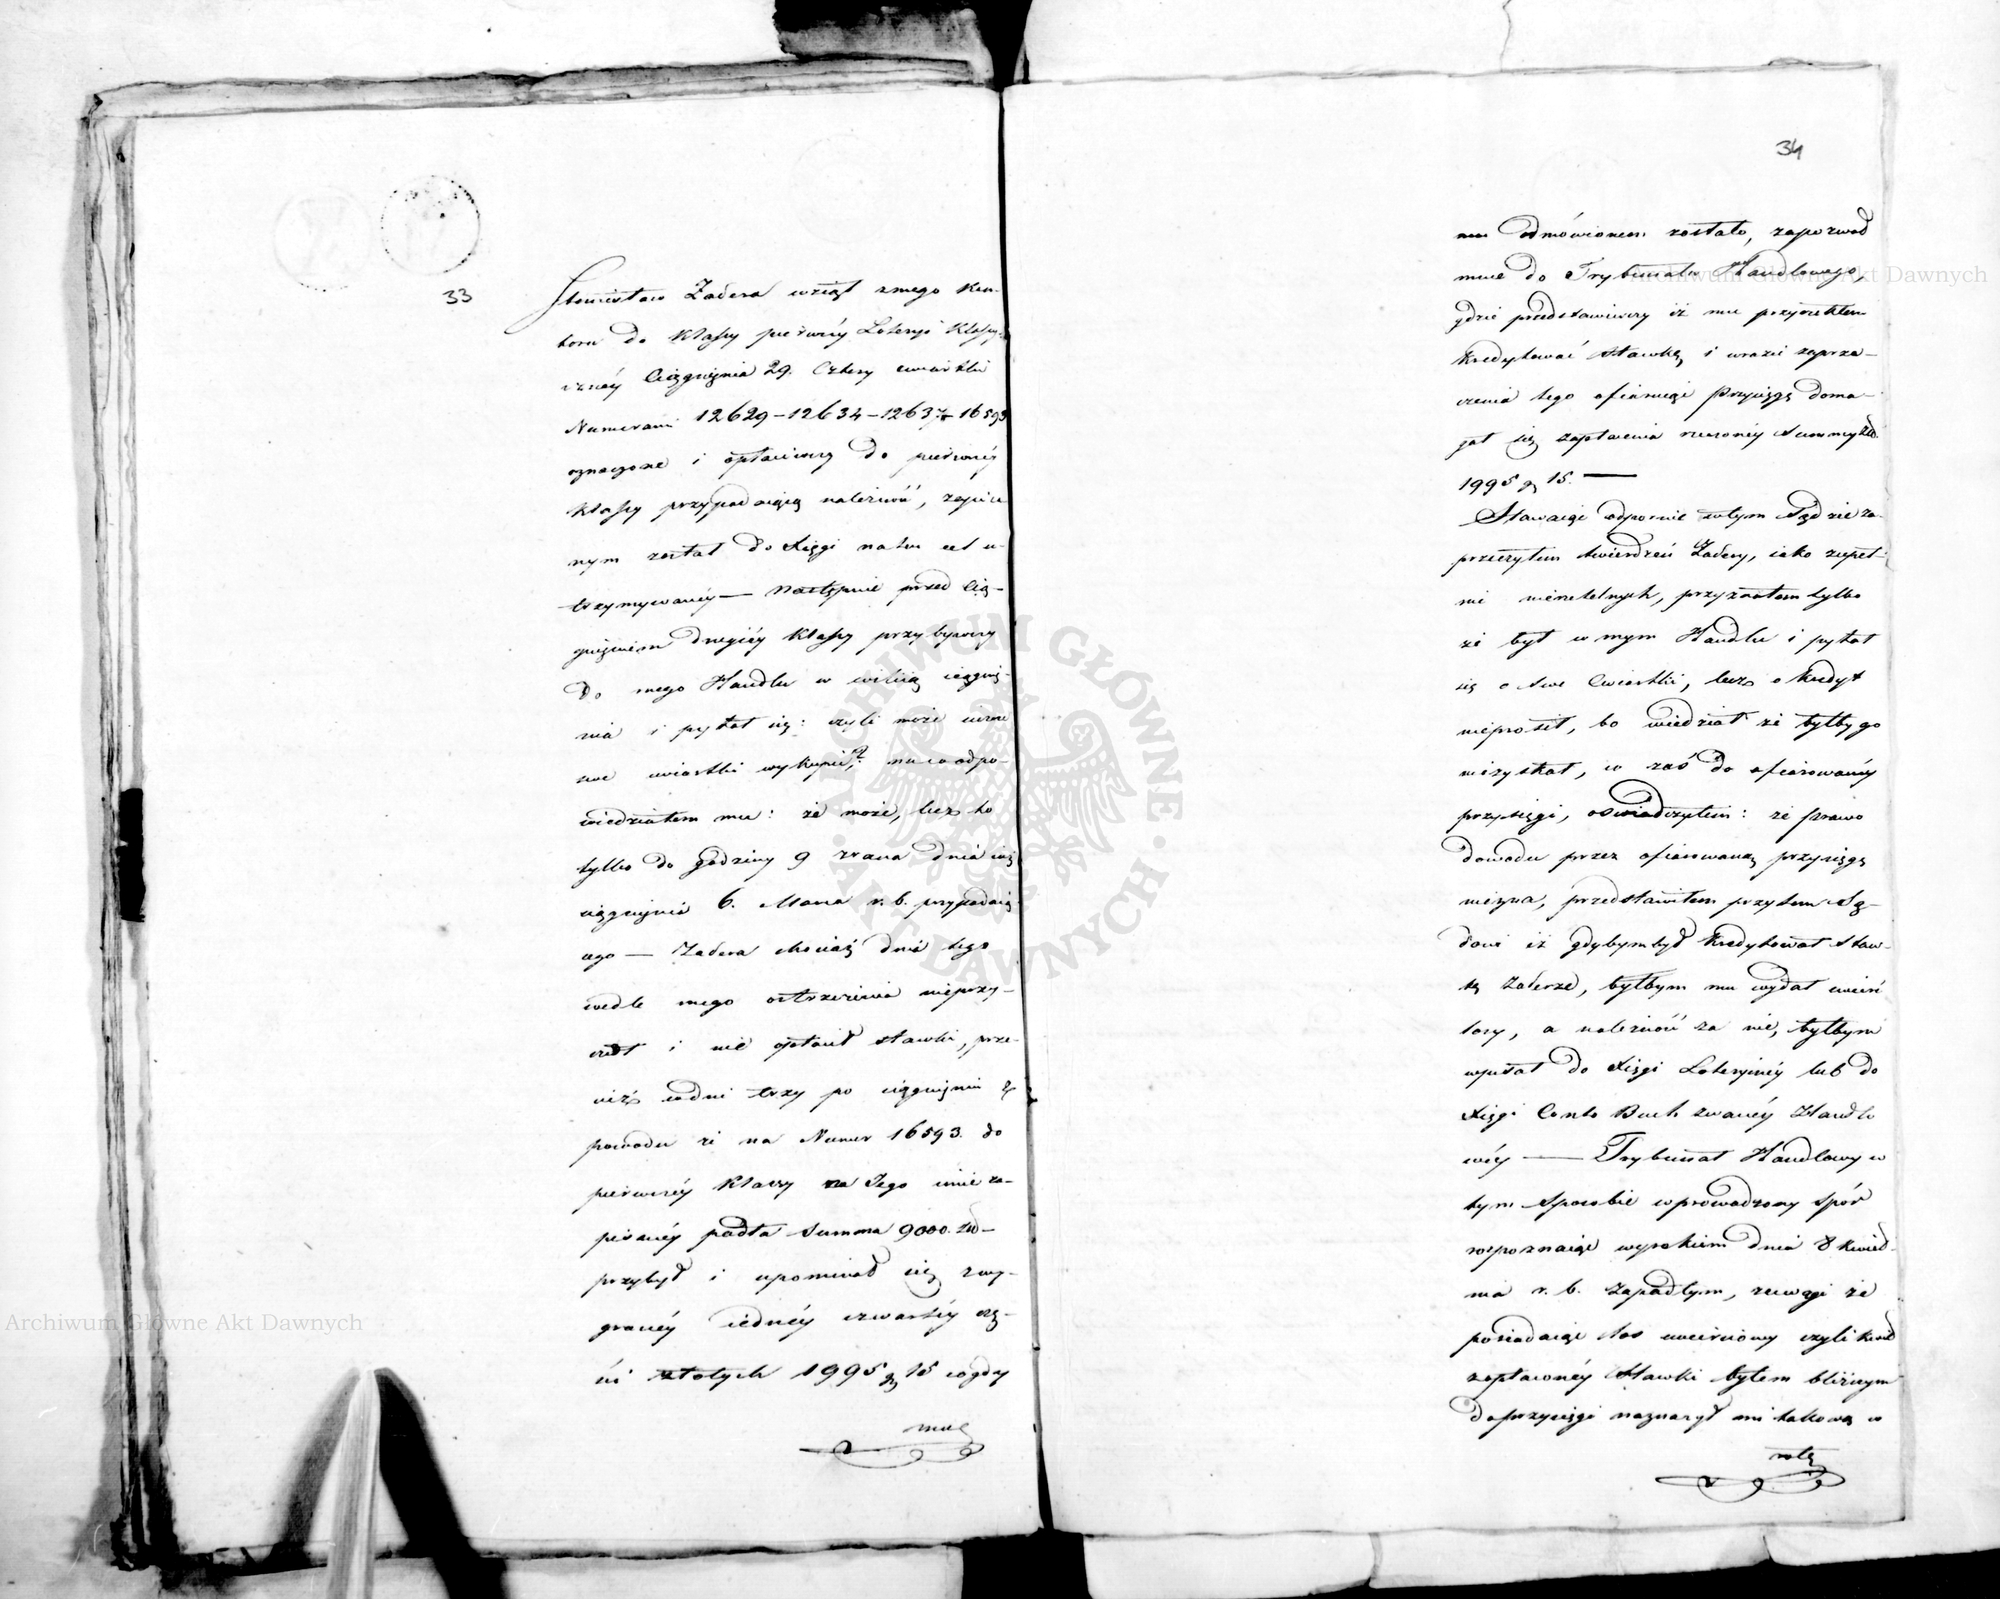 33
Stanisław Zadera wziął z mego Kan-
toru do Klassy pierwszéy Loteryi Klassy-
cznéy Ciągnienia 29. Cztery cwiartki
Numerami 12629 – 12634 – 12637 – 16593
oznaczone i opłaciwszy do pierwszéy
Klassy przypadaiącą należność, zapisa
nym został do Xięgi na ten cel u-
trzymywanéy — Następnie przed Cią-
gnieniem drugiéy Klassy przybywszy
do mego Handlu w wilią ciągnie-
nia i pytał się: czyli może
swe cwiartki wykupić? na co odpo-
wiedziałem mu: że może, lecz to
tylko do godziny 9 zrana dnia
ciągnienia 6. Marca r. b. przypadaią-
cego — Zadera chociaż dnia tego
wedle mego ostrzeżenia nieprzy-
szedł i nie opłacił stawki, prze-
cież wdni trzy po ciągnieniu z
powodu że na Numer 16593. do
pierwszéy Klassy na Jego imie za-
pisanéy padła Summa 9000. złp
przybył i upominał się z wy-
granéy iednéy czwartéy czę-
ści złotych 1995 gr 15 co gdy
mu
34
mu odmówionem zostało, zapozwał
mnie do Trybunału Handlowego,
gdzie przedstawiwszy iż mu przyrzekłem
kredytować stawkę, i wrazie zaprze-
czenia tego ofiaruiąc Przysięgę doma-
gał się zapłacenia rzeczonéy Summy złp.
1995 gr 15. —
Stawaiąc odpornie w tym Sądzie za-
przeczyłem twierdzeń Zadery, iako zupeł-
nie nierzetelnych, przyznałem tylko
że był w mym Handlu i pytał
się o swe Cwiartki, lecz o kredyt
nieprosił, bo wiedział że byłby go
niezyskał, co zaś do ofiarowanéy
przysięgi, oswiadczyłem: że prawo
dowodu przez ofiarowaną przysięgę
niezna, przedstawiłem przytem Są-
dowi iż gdybym był kredytował Staw-
kę Zaderze, byłbym mu wydał
losy, a należność za nie, byłbym
wpisał do Xięgi Loteryinéy lub do
Xięgi Conto Buch zwanéy Handlo
wéy — Trybunał Handlowy w
tym sposobie wprowadzony spór
rozpoznaiąc wyrokiem dnia 8 Kwiet-
nia r. b. zapadłym, zuwagi że
posiadaiąc los czyli kwit
zapłaconéy Stawki byłem bliższym
do przysięgi naznaczył mi takową w
rotę
Archiwum Główne Akt Dawnych
Archiwum Główne Akt Dawnych
ARCHIWUM GŁÓWNE
AKT DAWNYCH